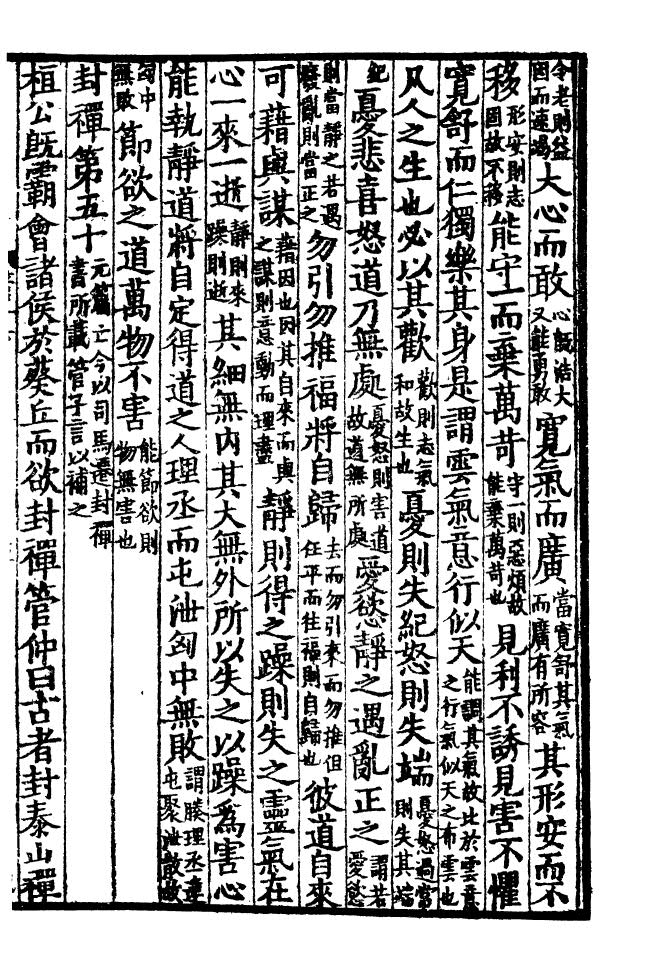 令老則益困而速竭大心而敢心既浩大又能勇敢寬氣而廣當寬舒其氣而廣有所容其形安而不
移形安則志固故不移能守一而棄萬苛守一則惡煩故能棄萬苛也見利不誘見害不懼
寬舒而仁獨樂其身是謂雲氣意行似天能調其氣故比於雲意之行氣似天之布雲也
凡人之生也必以其歡歡則志氣和故生也憂則失紀怒則失端憂怒過當則失其端
紀憂悲喜怒道乃無處憂怒則害道故道無所處愛慾靜之遇亂正之謂若愛慾
則當靜之若遇廢亂則當正之勿引勿推福將自歸去而勿引來而勿推但任平而往福則自歸也彼道自來
可藉與謀藉因也因其自來而與之謀則意動而理盡靜則得之躁則失之靈氣在
心一來一逝靜則來躁則逝其細無內其大無外所以失之以躁為害心
能執靜道將自定得道之人理丞而屯泄匈中無敗謂腠理丞達屯聚泄散故
匈中無敗節欲之道萬物不害能節欲則物無害也
封禪第五十元篇亡今以司馬遷封禪書所載管子言以補之
桓公既霸會諸侯於葵丘而欲封禪管仲曰古者封泰山禪